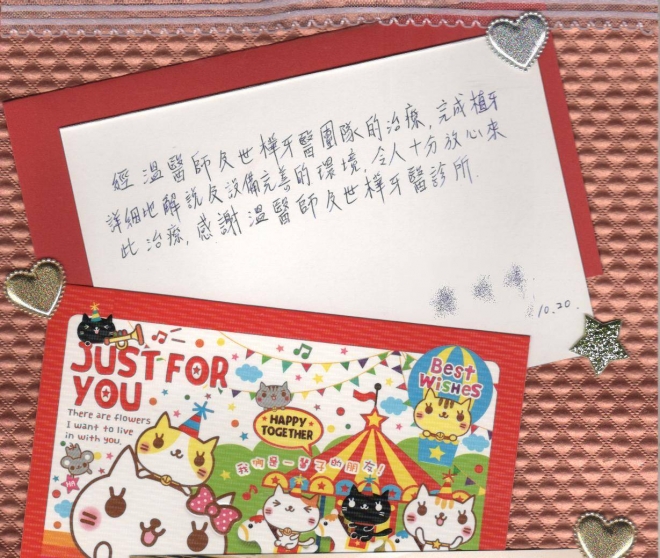 經溫醫師及世樺牙醫團隊的治療,完成植牙
詳細地解說及設備完善的環境,令人十分放心來
此治療,感謝溫醫師及世樺牙醫診所.
10.20.
JUST FOR
YOU
There are flowers
I want to live
in with you.
HAPPY
TOGETHER
BEST
WiSHES
我們是一輩子的朋友!